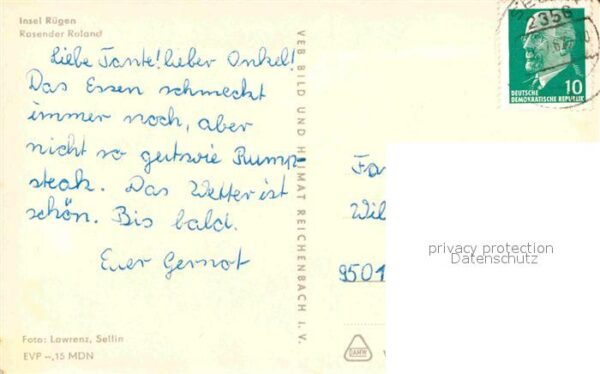 Insel Rügen
Rasender Roland
Liebe Tante! lieber Onkel!
Das Essen schmeckt
immer noch, aber
nicht so gut wie Rump-
steak. Das Wetter ist
schön. Bis bald.
Euer Gernot
Foto: Lawrenz, Sellin
EVP –,15 MDN
VEB BILD UND HEIMAT REICHENBACH I. V.
2356
DEUTSCHE
DEMOKRATISCHE REPUBLIK
10
Fa
Wil
9501
privacy protection
Datenschutz